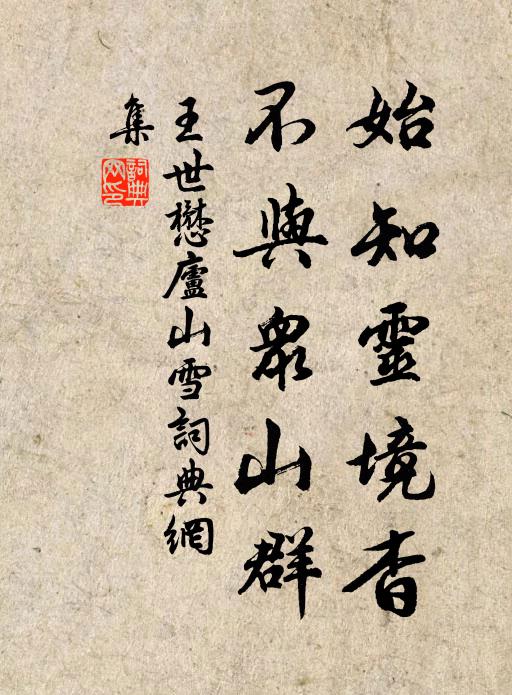 始知靈境杳
不與眾山群
王世懋廬山雪詞典網
集
詞典網印